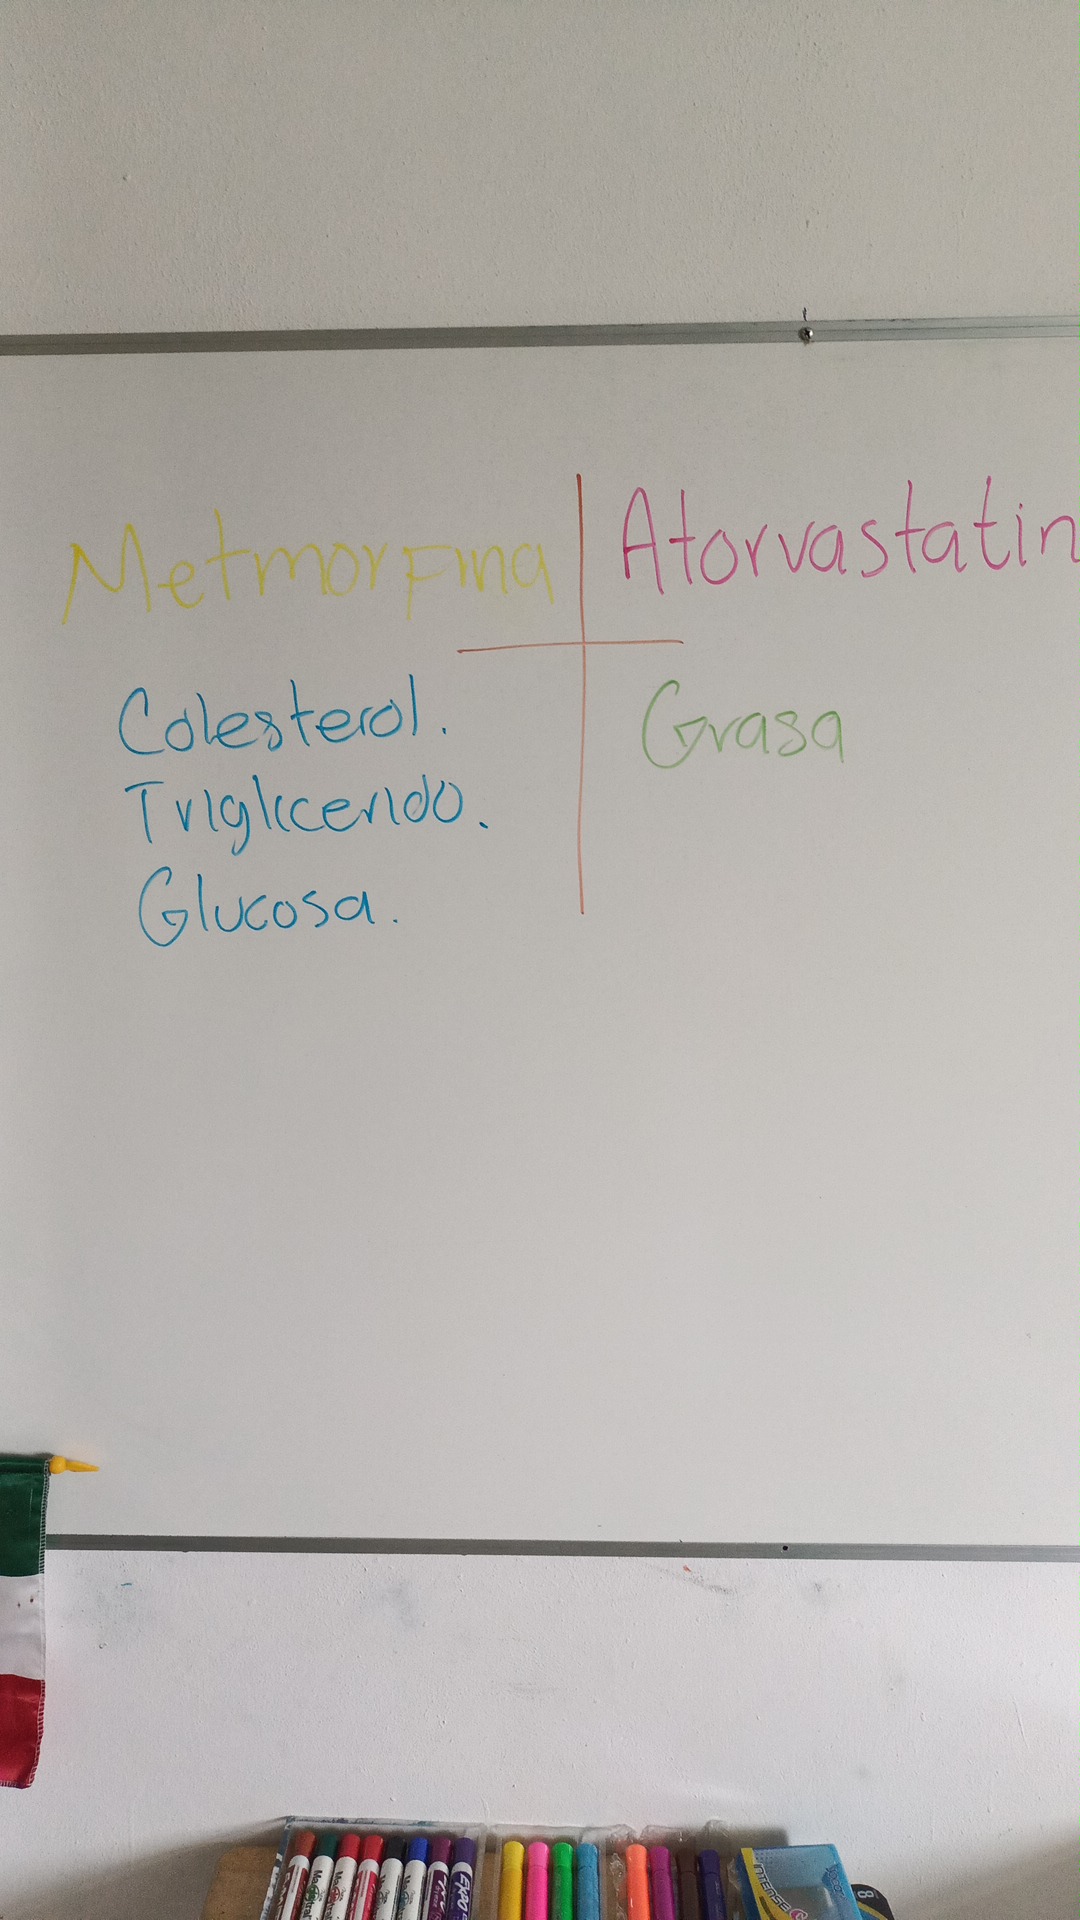 Metmorfina
Atorvastatin
Colesterol.
Triglicerido.
Glucosa.
Grasa
EXPO
INTENSE
8